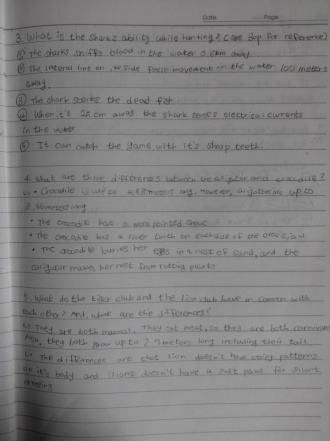 Date Page
3. What is the Shark's ability while hunting? (see 3op for reference)
① The sharks sniffs blood in the water 0.5km away
② The lateral line on its side feels movement in the water 100 meters
away.
③ The shark the dead fish
④ When it's 25 cm away the shark senses electrical currents
in the water
⑤ It can catch the game with it's sharp teeth.
4. What are three differences between alligator and crocodile?
• Crocodile is up to 7 meters long. However, alligators up to
meters long
• The crocodile has a more pointed snout
• The crocodile has a lower tooth on outside of the crocs jaw
• The crocodile buries her eggs in a nest of sand, and the
alligator makes her nest from rotting plants
5. What do the tiger club and the lion club have in common with
each other? And, what are the differences?
They are both mammal. They eat meat, so they are both carnivore
Also, they both grow up to 2-3 meters long including their tail
The differences are that lion doesn't have stripy patterns
on it's body and lions doesn't have a soft paws for silent